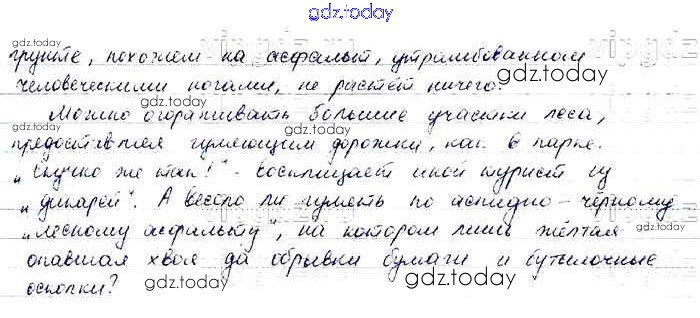 gdz.today
грунте, похожем на асфальт, утрамбованном
человеческими ногами, не растёт ничего.
Можно огораживать большие участки леса,
предоставляя гуляющим дорожки, как в парке.
„Скучно же так!" - восклицает иной турист из
„дикарей". А весело ли гулять по аспидно-черному
„лесному асфальту", на котором лишь жёлтая
опавшая хвоя да обрывки бумаги и бутылочные
осколки?